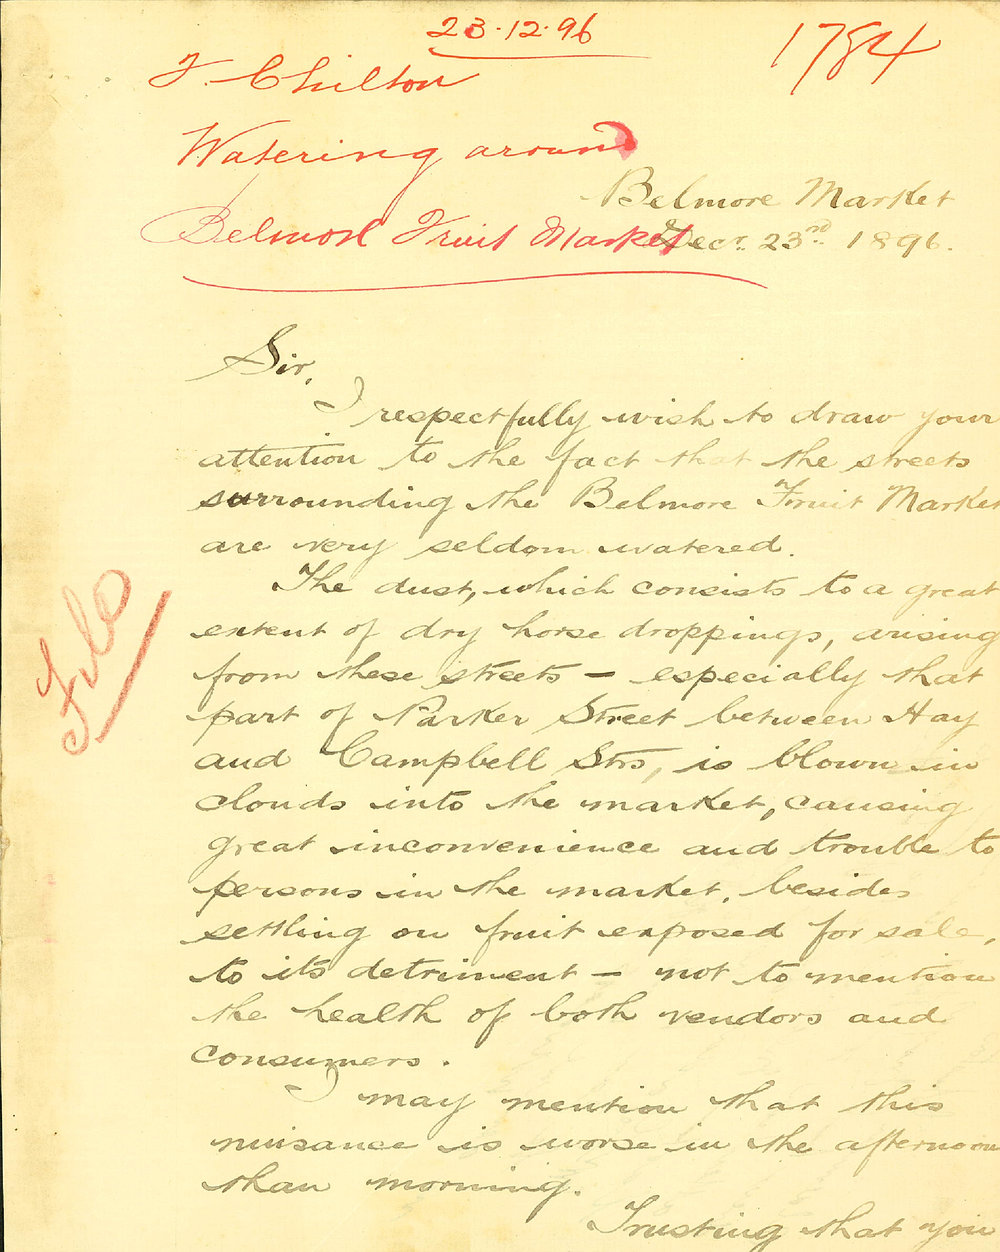 23.12.96
1784
F. Chilton
Watering around
Belmore Fruit Market
Belmore Market
Decr. 23rd 1896.
Sir,
I respectfully wish to draw your
attention to the fact that the streets
surrounding the Belmore Fruit Market
are very seldom watered.
The dust, which consists to a great
extent of dry horse droppings, arising
from these streets – especially that
part of Parker Street between Hay
and Campbell Sts, is blown in
clouds into the market, causing
great inconvenience and trouble to
persons in the market, besides
settling on fruit exposed for sale,
to its detriment – not to mention
the health of both vendors and
consumers.
I may mention that this
nuisance is worse in the afternoon
than morning.
Trusting that you
File